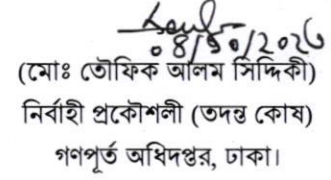 ০৪/১০/২০২৬
(মোঃ তৌফিক আলম সিদ্দিকী)
নির্বাহী প্রকৌশলী (তদন্ত কোষ)
গণপূর্ত অধিদপ্তর, ঢাকা।